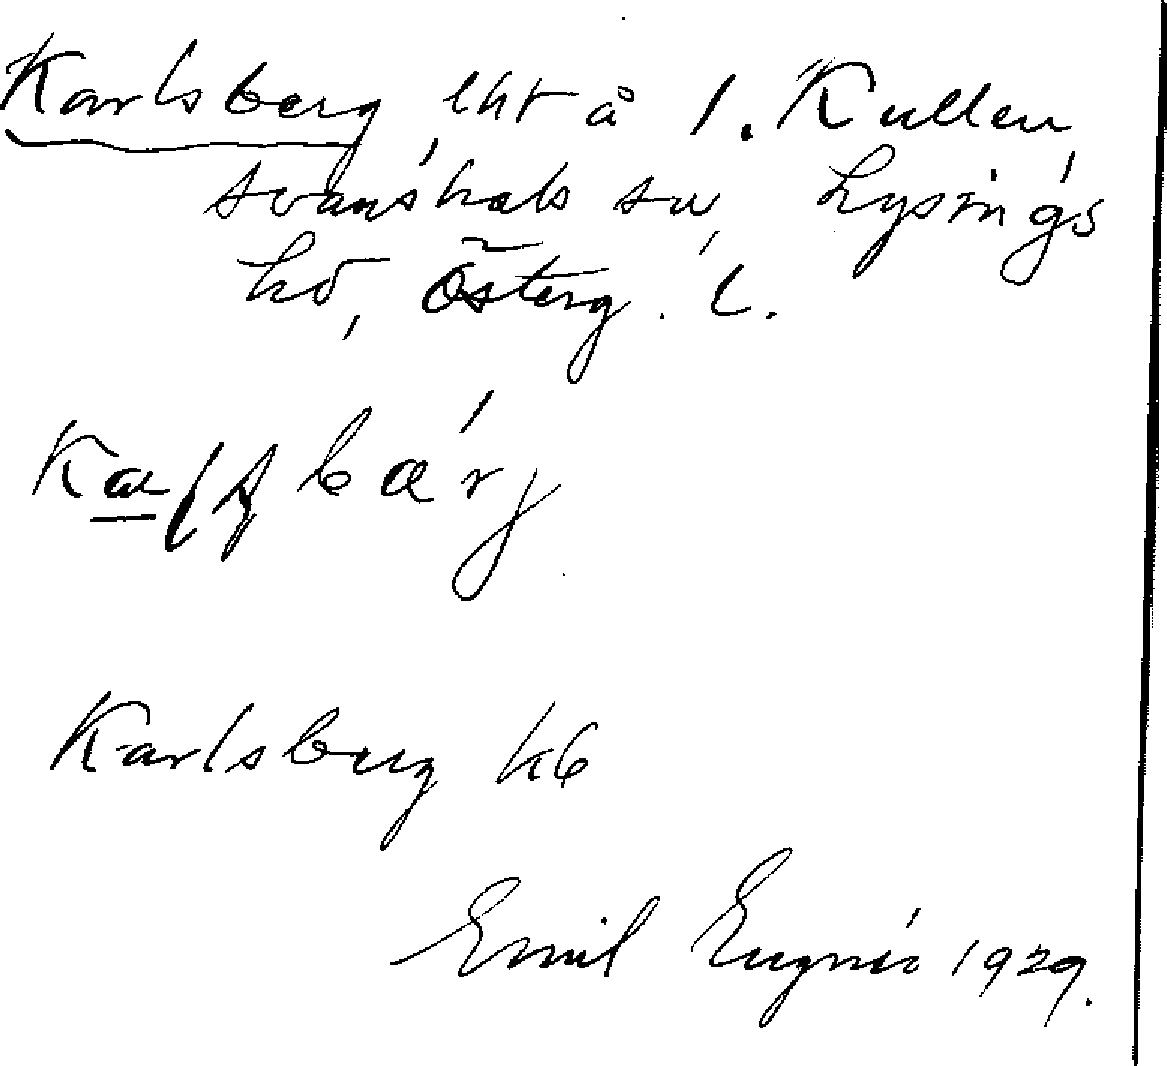 Karlsberg, lht å 1. Kullen,
Svanshals sn, Lysings
hd, Österg. l.
Karlsberg kb
Emil Eugnér 1929.